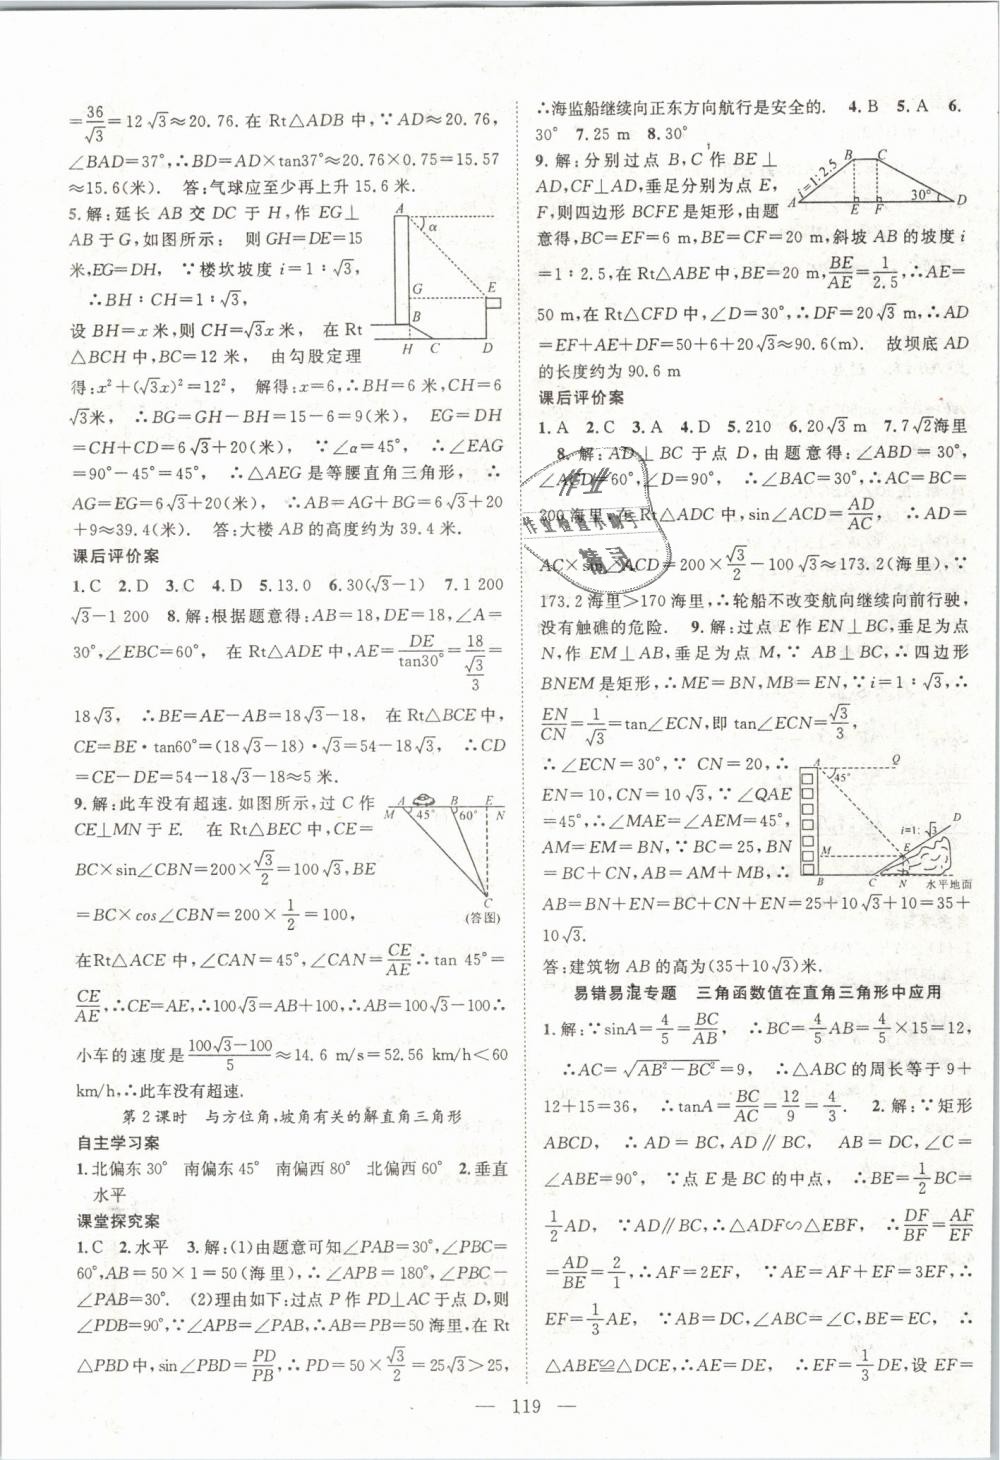 =36/√3=12√3≈20.76.在 Rt△ADB 中,∵AD≈20.76,
∠BAD=37°,∴BD=AD×tan37°≈20.76×0.75=15.57
≈15.6(米). 答:气球应至少再上升 15.6 米.
5.解:延长 AB 交 DC 于 H,作 EG⊥
AB 于 G,如图所示: 则 GH=DE=15
米,EG=DH, ∵楼坎坡度 i=1∶√3,
∴BH∶CH=1∶√3,
设 BH=x 米,则 CH=√3x 米, 在 Rt
△BCH 中,BC=12 米, 由勾股定理
得:x²+(√3x)²=12², 解得:x=6,∴BH=6 米,CH=6
√3米, ∴BG=GH-BH=15-6=9(米), EG=DH
=CH+CD=6√3+20(米), ∵∠α=45°, ∴∠EAG
=90°-45°=45°, ∴△AEG 是等腰直角三角形, ∴
AG=EG=6√3+20(米), ∴AB=AG+BG=6√3+20
+9≈39.4(米). 答:大楼 AB 的高度约为 39.4 米.
A
α
G
E
B
H C D
课后评价案
1.C 2.D 3.C 4.D 5.13.0 6.30(√3-1) 7.1 200
√3-1 200 8.解:根据题意得:AB=18,DE=18,∠A=
30°,∠EBC=60°, 在 Rt△ADE 中,AE=DE/tan30°=18/(√3/3)=
18√3, ∴BE=AE-AB=18√3-18, 在 Rt△BCE 中,
CE=BE·tan60°=(18√3-18)·√3=54-18√3, ∴CD
=CE-DE=54-18√3-18≈5 米.
9.解:此车没有超速.如图所示,过 C 作
CE⊥MN 于 E. 在 Rt△BEC 中,CE=
BC×sin∠CBN=200×√3/2=100√3,BE
=BC×cos∠CBN=200×1/2=100,
A B E
M 45° 60° N
C
(答图)
在Rt△ACE 中,∠CAN=45°,∠CAN=CE/AE∴tan 45°=
CE/AE,∴CE=AE,∴100√3=AB+100,∴AB=100√3-100∴
小车的速度是(100√3-100)/5≈14.6 m/s=52.56 km/h<60
km/h,∴此车没有超速.
第 2 课时 与方位角,坡角有关的解直角三角形
自主学习案
1.北偏东 30° 南偏东 45° 南偏西 80° 北偏西 60° 2.垂直
水平
课堂探究案
1.C 2.水平 3.解:(1)由题意可知∠PAB=30°,∠PBC=
60°,AB=50×1=50(海里),∴∠APB=180°,∠PBC-
∠PAB=30°. (2)理由如下:过点 P 作 PD⊥AC 于点 D,则
∠PDB=90°,∵∠APB=∠PAB,∴AB=PB=50 海里,在 Rt
△PBD 中,sin∠PBD=PD/PB,∴PD=50×√3/2=25√3>25,
∴海监船继续向正东方向航行是安全的. 4.B 5.A 6.
30° 7.25 m 8.30°
9.解:分别过点 B,C 作 BE⊥
AD,CF⊥AD,垂足分别为点 E,
F,则四边形 BCFE 是矩形,由题
B C
i=1∶2.5
30°
A E F D
意得,BC=EF=6 m,BE=CF=20 m,斜坡 AB 的坡度 i
=1∶2.5,在 Rt△ABE 中,BE=20 m,BE/AE=1/2.5,∴AE=
50 m,在 Rt△CFD 中,∠D=30°,∴DF=20√3 m,∴AD
=EF+AE+DF=50+6+20√3≈90.6(m). 故坝底 AD
的长度约为 90.6 m
课后评价案
1.A 2.C 3.A 4.D 5.210 6.20√3 m 7.7√2海里
8.解:AD⊥BC 于点 D,由题意得:∠ABD=30°,
∠ACD=60°,∠D=90°, ∴∠BAC=30°,∴AC=BC=
200 海里,在 Rt△ADC 中,sin∠ACD=AD/AC, ∴AD=
AC×sin∠ACD=200×√3/2-100√3≈173.2(海里),∵
173.2 海里>170 海里,∴轮船不改变航向继续向前行驶,
没有触礁的危险. 9.解:过点 E 作 EN⊥BC,垂足为点
N,作 EM⊥AB,垂足为点 M,∵ AB⊥BC,∴四边形
BNEM 是矩形,∴ME=BN,MB=EN,∵i=1∶√3,∴
EN/CN=1/√3=tan∠ECN,即 tan∠ECN=√3/3,
∴∠ECN=30°,∵ CN=20,∴
EN=10,CN=10√3,∵∠QAE
=45°,∴∠MAE=∠AEM=45°,
AM=EM=BN,∵BC=25,BN
=BC+CN,AB=AM+MB,∴
A Q
45°
i=1:√3 D
M E
B C N 水平地面
AB=BN+EN=BC+CN+EN=25+10√3+10=35+
10√3.
答:建筑物 AB 的高为(35+10√3)米.
易错易混专题 三角函数值在直角三角形中应用
1.解:∵sinA=4/5=BC/AB, ∴BC=4/5AB=4/5×15=12,
∴AC=√(AB²-BC²)=9, ∴△ABC 的周长等于 9+
12+15=36, ∴tanA=BC/AC=12/9=4/3. 2.解:∵矩形
ABCD, ∴AD=BC,AD∥BC, AB=DC,∠C=
∠ABE=90°, ∵点 E 是 BC 的中点, ∴BE=1/2BC=
1/2AD, ∵AD∥BC,∴△ADF∽△EBF, ∴DF/BF=AF/EF
=AD/BE=2/1,∴AF=2EF, ∵AE=AF+EF=3EF,∴
EF=1/3AE, ∵AB=DC,∠ABC=∠C,BE=EC, ∴
△ABE≌△DCE,∴AE=DE, ∴EF=1/3DE,设 EF=
作业
作业检查小助手
精灵
— 119 —